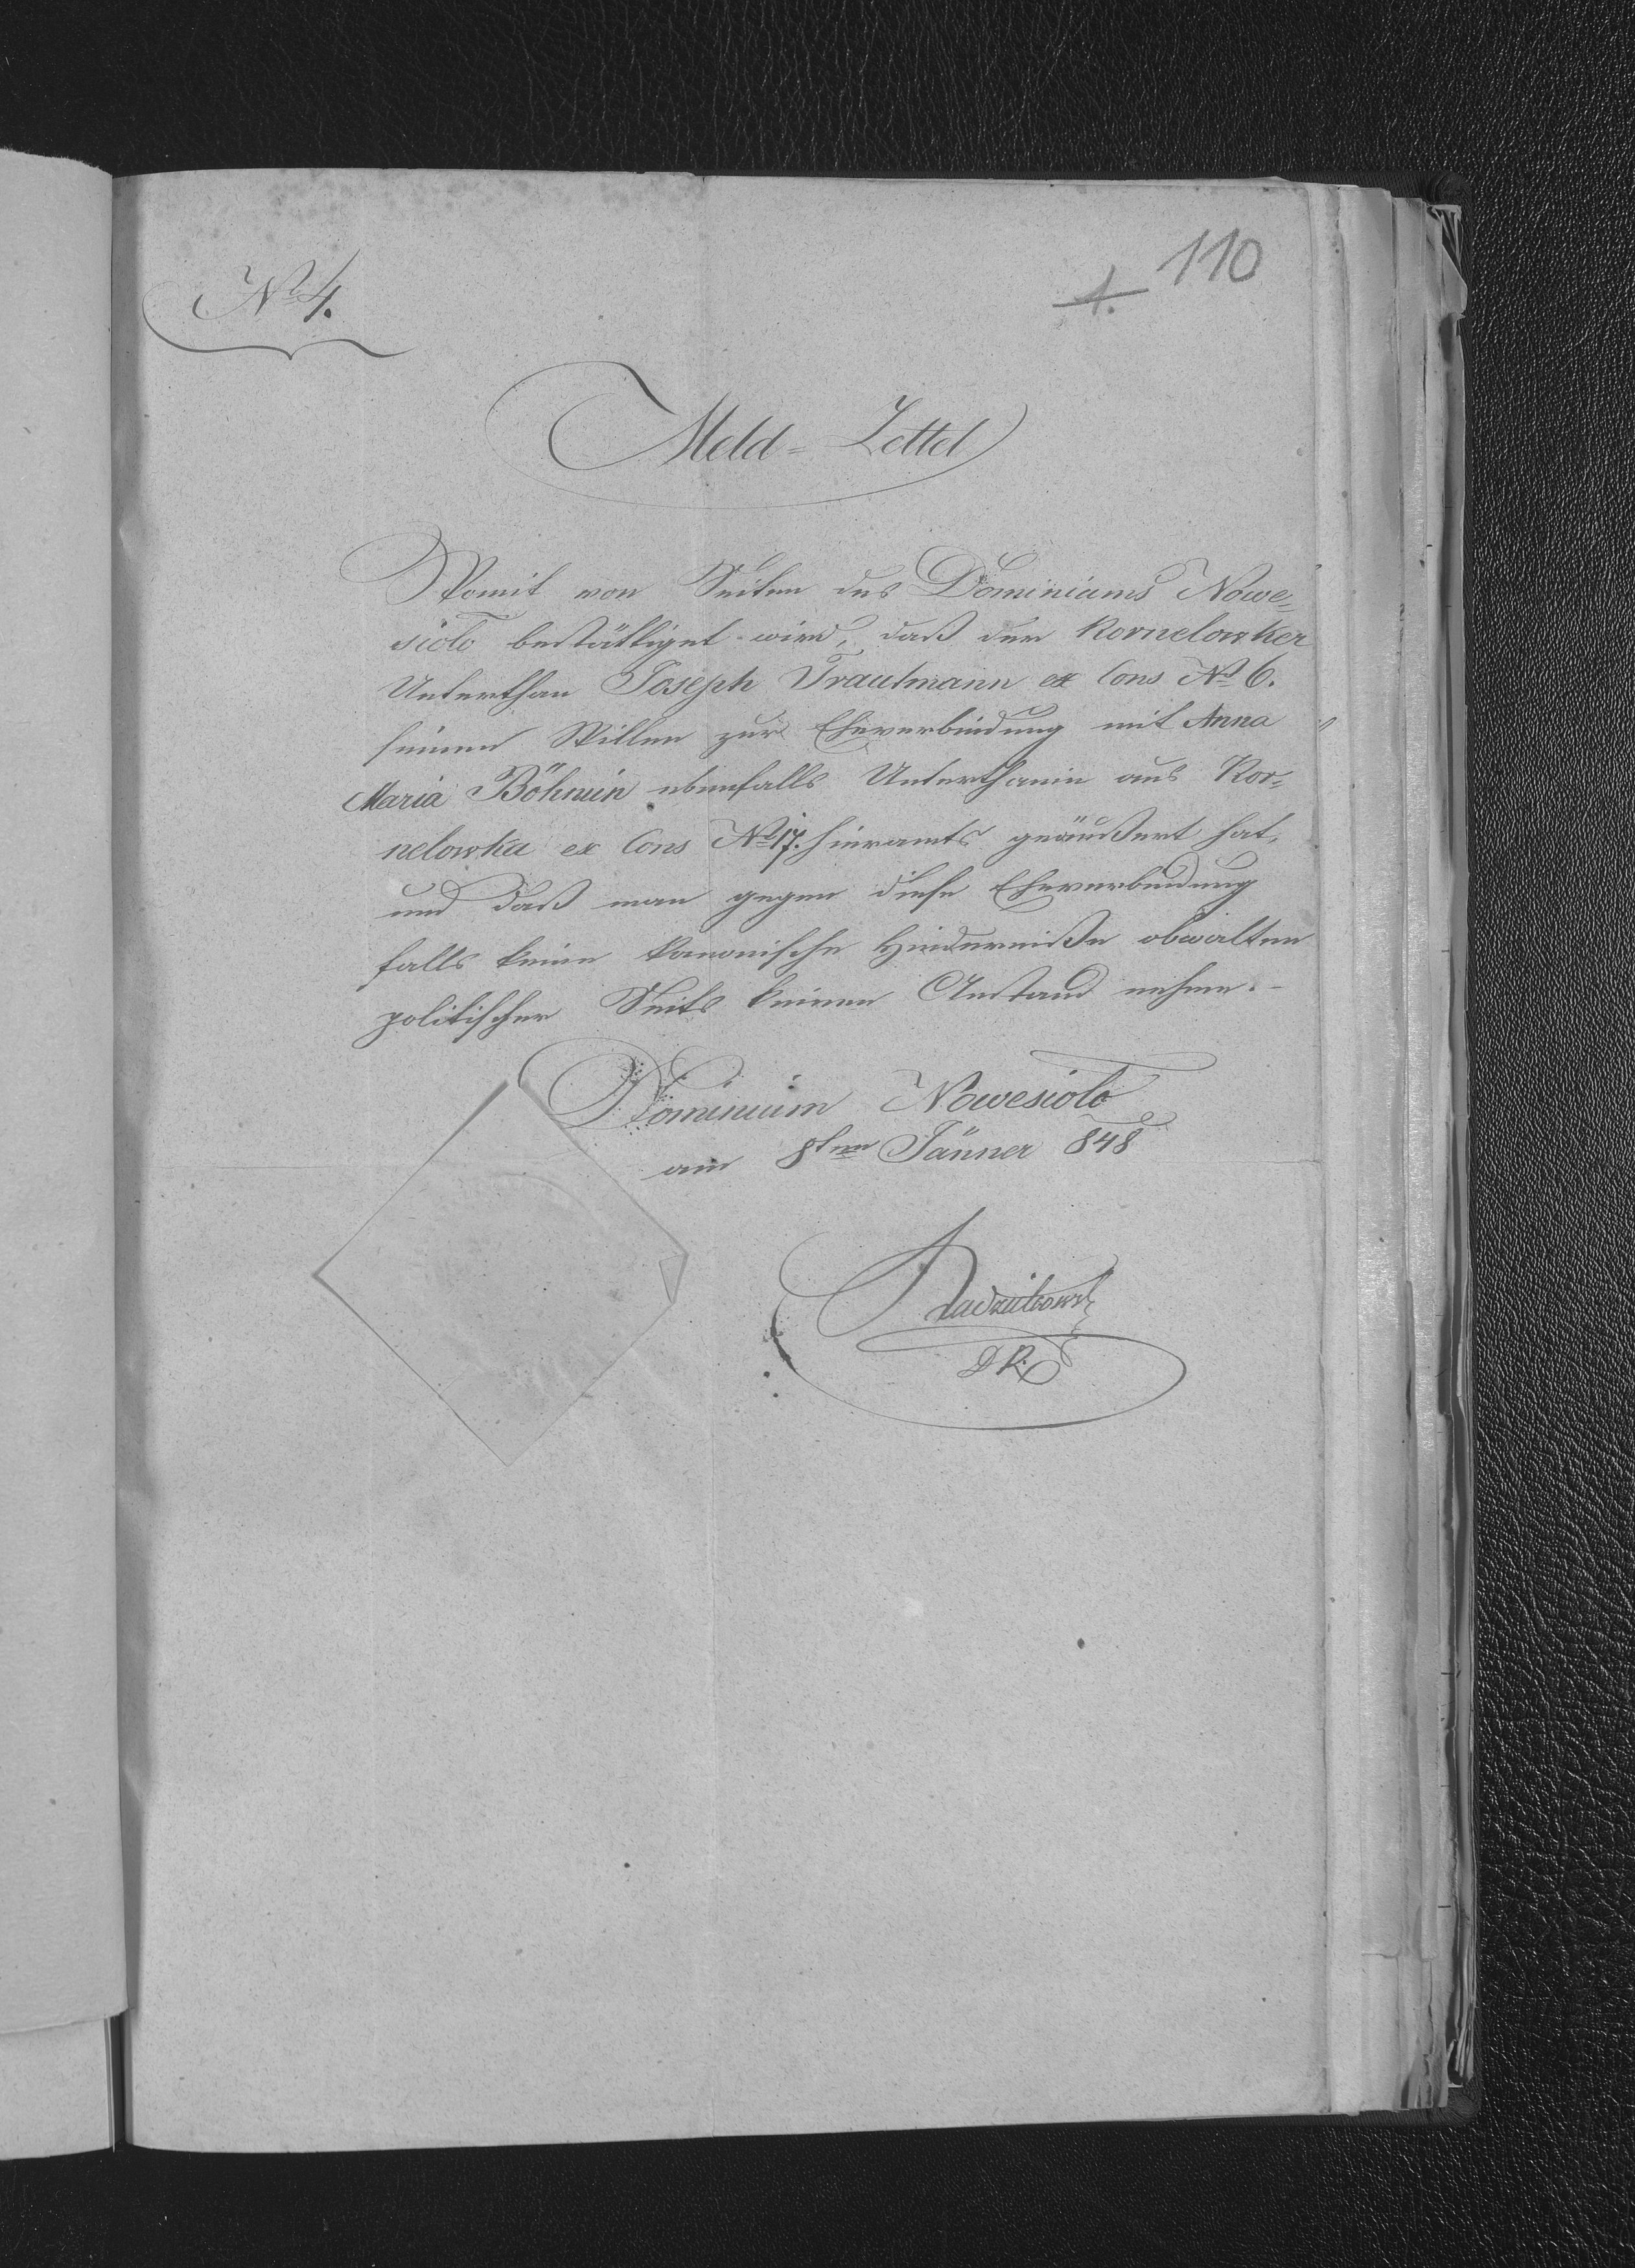 110
1.
No 4.
Meld= Zettel
Womit von Seiten des Dominiums Nowe=
siolo bestättiget wird, daß der Kornelowker
Unterthan Joseph Trautmann ex Cons No 6.
seinen Willen zur Eheverbindung mit Anna
Maria Böhmin ebenfalls Unterthanin aus Kor=
nelowka ex Cons No 17. hieramts geäußert hat,
und daß man gegen diese Eheverbindung
falls keine kanonische Hinderniße obwalten
politischer Seits keinen Anstand nehme.-
Dominium Nowesiolo
am 8ten Jänner 848